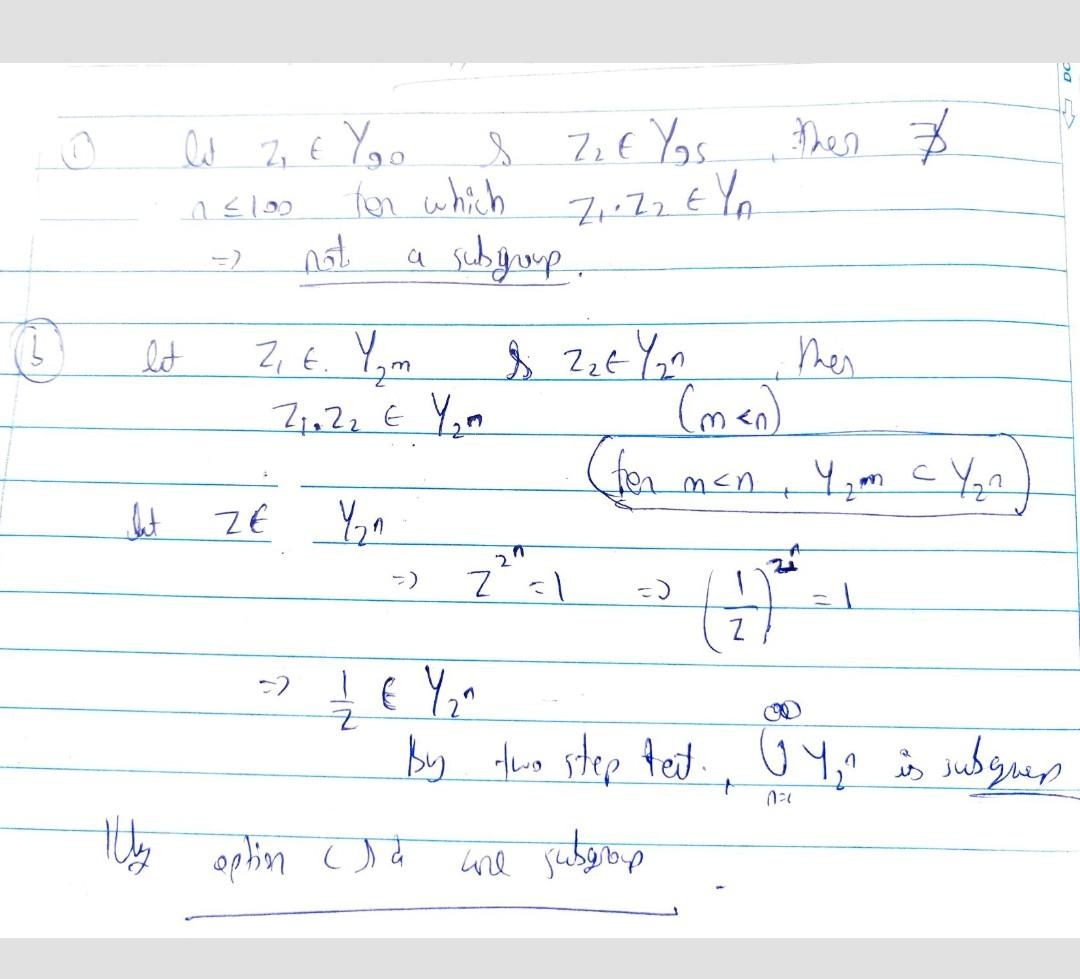 ① let z₁ ∈ Y₉₀ & z₂ ∈ Y₉₅, then ∄
n ≤ 100 for which z₁·z₂ ∈ Yₙ
⇒ not a subgroup.
ⓑ let z₁ ∈ Y_{2^m} & z₂ ∈ Y_{2^n}, then
z₁·z₂ ∈ Y_{2^n} (m<n)
(for m<n, Y_{2^m} ⊂ Y_{2^n})
let z ∈ Y_{2^n}
⇒ z^{2^n} = 1 ⇒ (1/z)^{2^n} = 1
⇒ 1/z ∈ Y_{2^n}
By two step test, ∞⋃n=1 Y_{2^n} is subgroup
|||ly option c & d are subgroup.